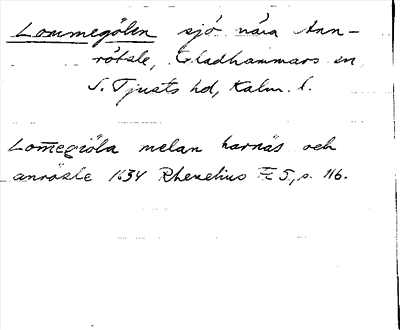 Lommegölen sjö nära Ann-
rötsle, Gladhammars sn
S. Tjusts hd, Kalm. l.
Lom̅egiöla melan harnäs och
anrösle 1634 Rhezelius Fc 5, s. 116.